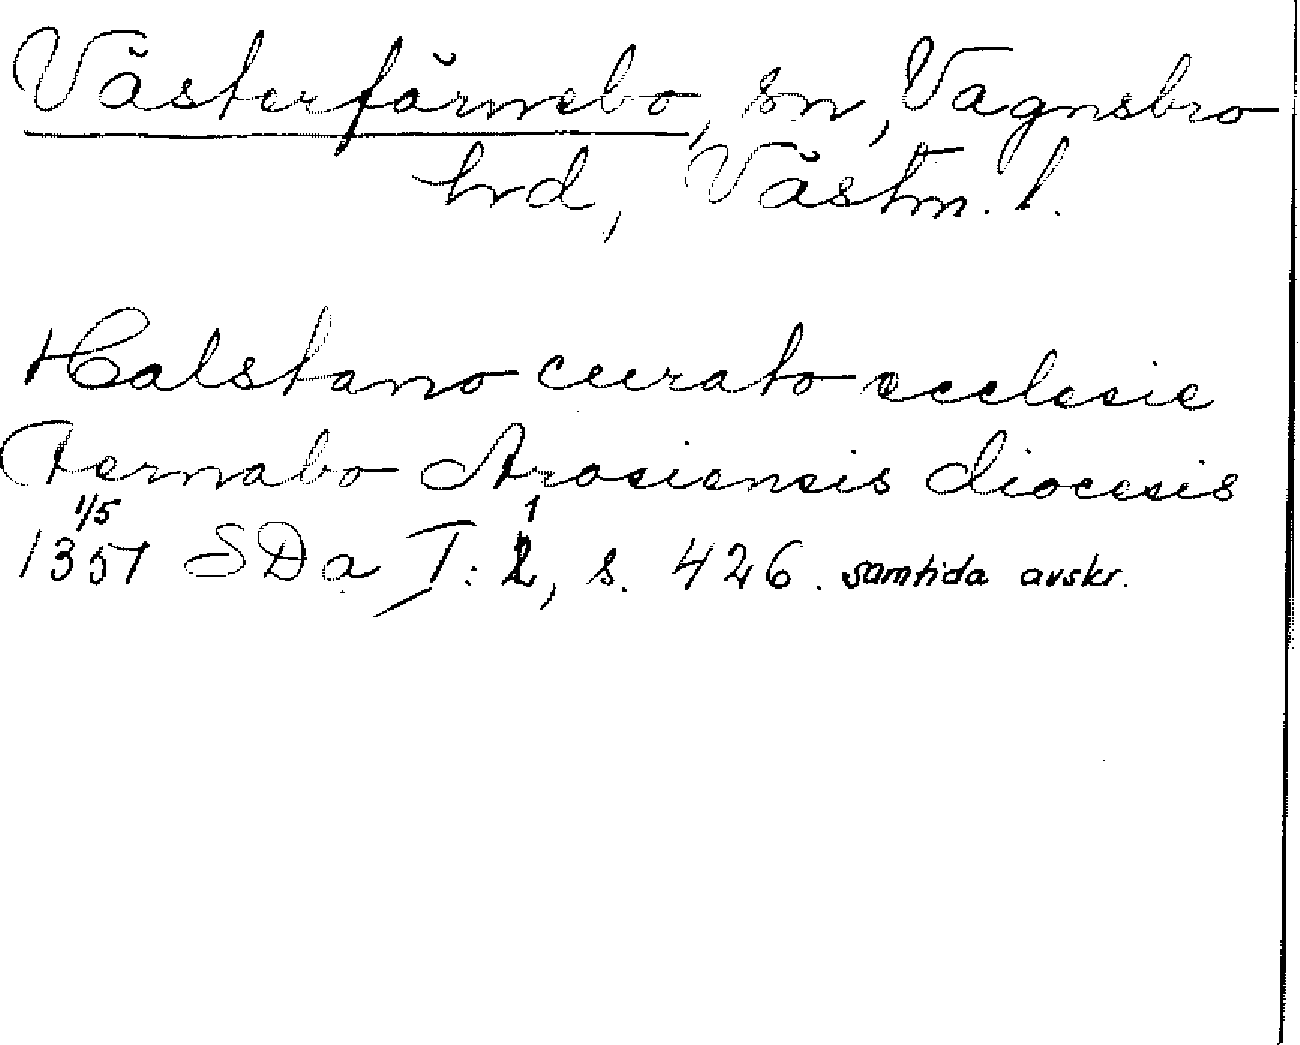 Västerfärnebo, sn, Vagnsbro
hrd, Västm. l.
Halstano curato ecclesie
Fernabo Arosiensis diocesis
1/5 1
1357 SDa I: 2, s. 426. samtida avskr.